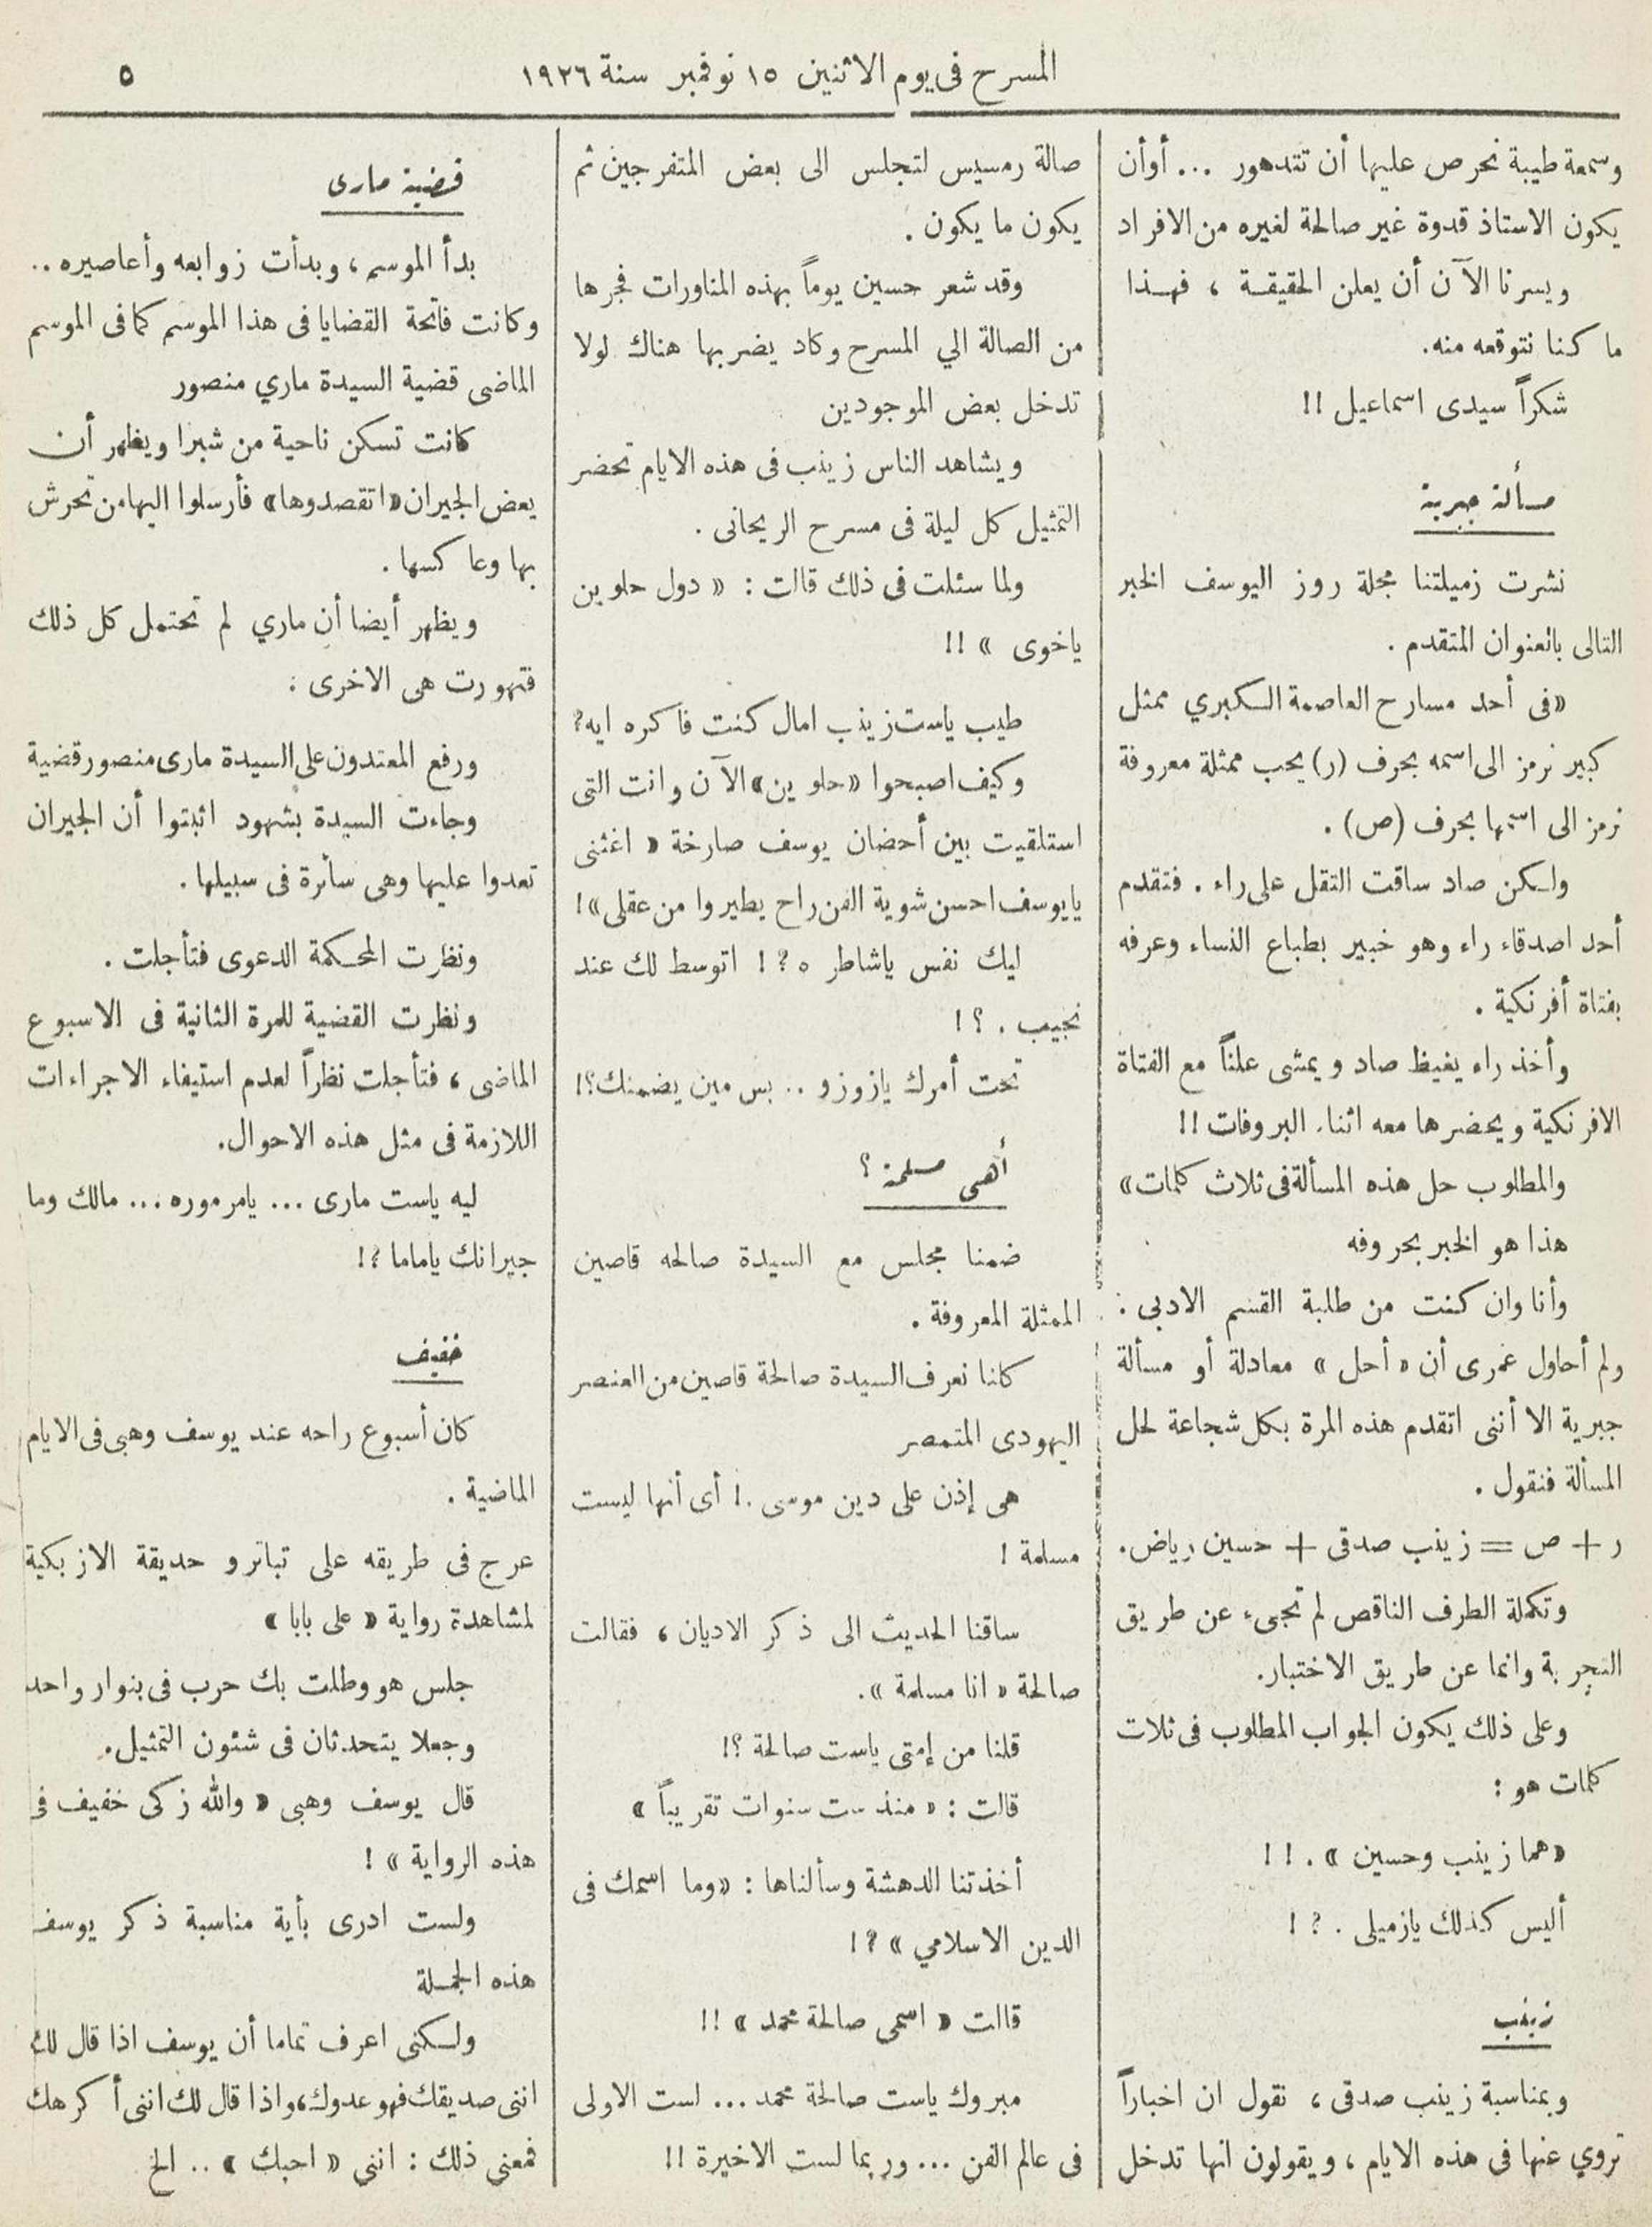 المسرح فى يوم الاثنين ١٥ نوفمبر سنة ١٩٢٦
٥
وسمعة طيبة نحرص عليها أن تتدهور ... أوأن
يكون الاستاذ قدوة غير صالحة لغيره من الافراد
ويسرنا الآن أن يعلن الحقيقة ، فهذا
ما كنا نتوقعه منه.
شكراً سيدى اسماعيل !!
مسألة جبرية
نشرت زميلتنا مجلة روز اليوسف الخبر
التالى بالعنوان المتقدم .
«فى أحد مسارح العاصمة الكبري ممثل
كبير نرمز الى اسمه بحرف (ر) يحب ممثلة معروفة
نرمز الى اسمها بحرف (ص) .
ولكن صاد ساقت التقل على راء . فتقدم
أحد اصدقاء راء وهو خبير بطباع النساء وعرفه
بفتاة أفرنكية .
وأخذ راء يغيظ صاد ويمشى علناً مع الفتاة
الافرنكية ويحضرها معه اثناء البروفات !!
والمطلوب حل هذه المسألة فى ثلاث كلمات»
هذا هو الخبر بحروفه
وأنا وان كنت من طلبة القسم الادبى .
ولم أحاول عمرى أن « أحل » معادلة أو مسألة
جبرية الا أننى اتقدم هذه المرة بكل شجاعة لحل
المسألة فنقول .
ر + ص = زينب صدقى + حسين رياض.
وتكملة الطرف الناقص لم تجىء عن طريق
التجربة وانما عن طريق الاختبار.
وعلى ذلك يكون الجواب المطلوب فى ثلاث
كلمات هو :
«هما زينب وحسين » . !!
أليس كذلك يازميلى . ? !
زينب
وبمناسبة زينب صدقى ، نقول ان اخباراً
تروي عنها فى هذه الايام ، ويقولون انها تدخل
صالة رمسيس لتجلس الى بعض المتفرجين ثم
يكون ما يكون .
وقد شعر حسين يوماً بهذه المناورات فجرها
من الصالة الي المسرح وكاد يضربها هناك لولا
تدخل بعض الموجودين
ويشاهد الناس زينب فى هذه الايام تحضر
التمثيل كل ليلة فى مسرح الريحانى .
ولما سئلت فى ذلك قالت : « دول حلوين
ياخوى » !!
طيب ياست زينب امال كنت فاكره ايه?
وكيف اصبحوا «حلوين» الآن وانت التى
استلقيت بين أحضان يوسف صارخة « اغثنى
يايوسف احسن شوية الفن راح يطيروا من عقلى»!
ليك نفس ياشاطره ? ! اتوسط لك عند
نجيب . ؟ !
تحت أمرك يازوزو .. بس مين يضمنك؟!
أهى مسلمة ؟
ضمنا مجلس مع السيدة صالحه قاصين
الممثلة المعروفة .
كانا نعرف السيدة صالحة قاصين من العنصر
اليهودى المتمصر
هى إذن على دين موسى .! أى أنها ليست
مسلمة !
ساقنا الحديث الى ذكر الاديان ، فقالت
صالحة « انا مسلمة ».
قلنا من إمتى ياست صالحة ؟!
قالت : « منذ ست سنوات تقريباً »
أخذتنا الدهشة وسألناها : «وما اسمك فى
الدين الاسلامي » ? !
قالت « اسمى صالحة محمد » !!
مبروك ياست صالحة محمد ... لست الاولى
فى عالم الفن ... وربما لست الاخيرة !!
قضية مارى
بدأ الموسم ، وبدأت زوابعه وأعاصيره ..
وكانت فاتحة القضايا فى هذا الموسم كما فى الموسم
الماضى قضية السيدة ماري منصور
كانت تسكن ناحية من شبرا ويظهر أن
بعض الجيران «اتقصدوها» فأرسلوا اليها من تحرش
بها وعاكسها .
ويظهر أيضا أن ماري لم تحتمل كل ذلك
فتهورت هى الاخرى :
ورفع المعتدون على السيدة مارى منصور قضية
وجاءت السيدة بشهود اثبتوا أن الجيران
تعدوا عليها وهى سائرة فى سبيلها .
ونظرت المحكمة الدعوى فتأجلت .
ونظرت القضية للمرة الثانية فى الاسبوع
الماضى ، فتأجلت نظراً لعدم استيفاء الاجراءات
اللازمة فى مثل هذه الاحوال.
ليه ياست مارى ... يامرموره ... مالك وما
جيرانك ياماما ؟ !
خفيف
كان أسبوع راحه عند يوسف وهبى فى الايام
الماضية .
عرج فى طريقه على تياترو حديقة الازبكية
لمشاهدة رواية « على بابا »
جلس هو وطلت بك حرب فى بنوار واحد
وجعلا يتحدثان فى شئون التمثيل.
قال يوسف وهبى « والله زكى خفيف فى
هذه الرواية » !
ولست ادرى بأية مناسبة ذكر يوسف
هذه الجملة
ولكنى اعرف تماما أن يوسف اذا قال لك
اننى صديقك فهو عدوك، واذا قال لك اننى أكرهك
فمعنى ذلك : انني « احبك » .. الخ